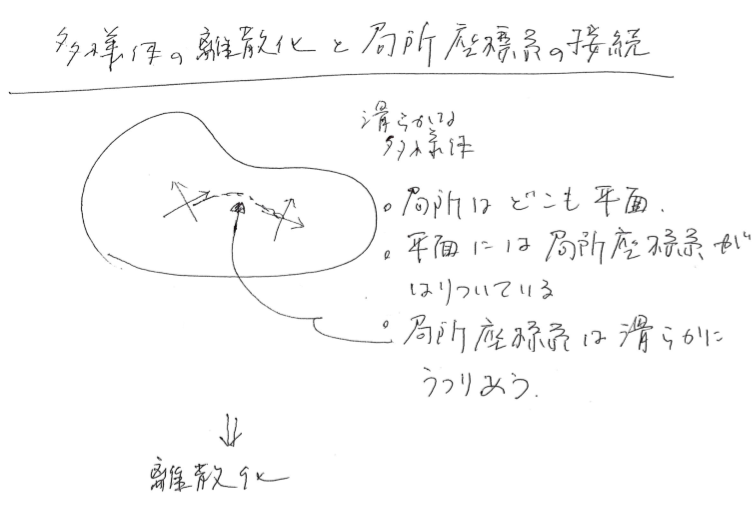 多様体の離散化と局所座標系の接続
滑らかな
多様体
。局所はどこも平面.
。平面には局所座標系が
はりついている
。局所座標系は滑らかに
うつりあう.
⇓
離散化